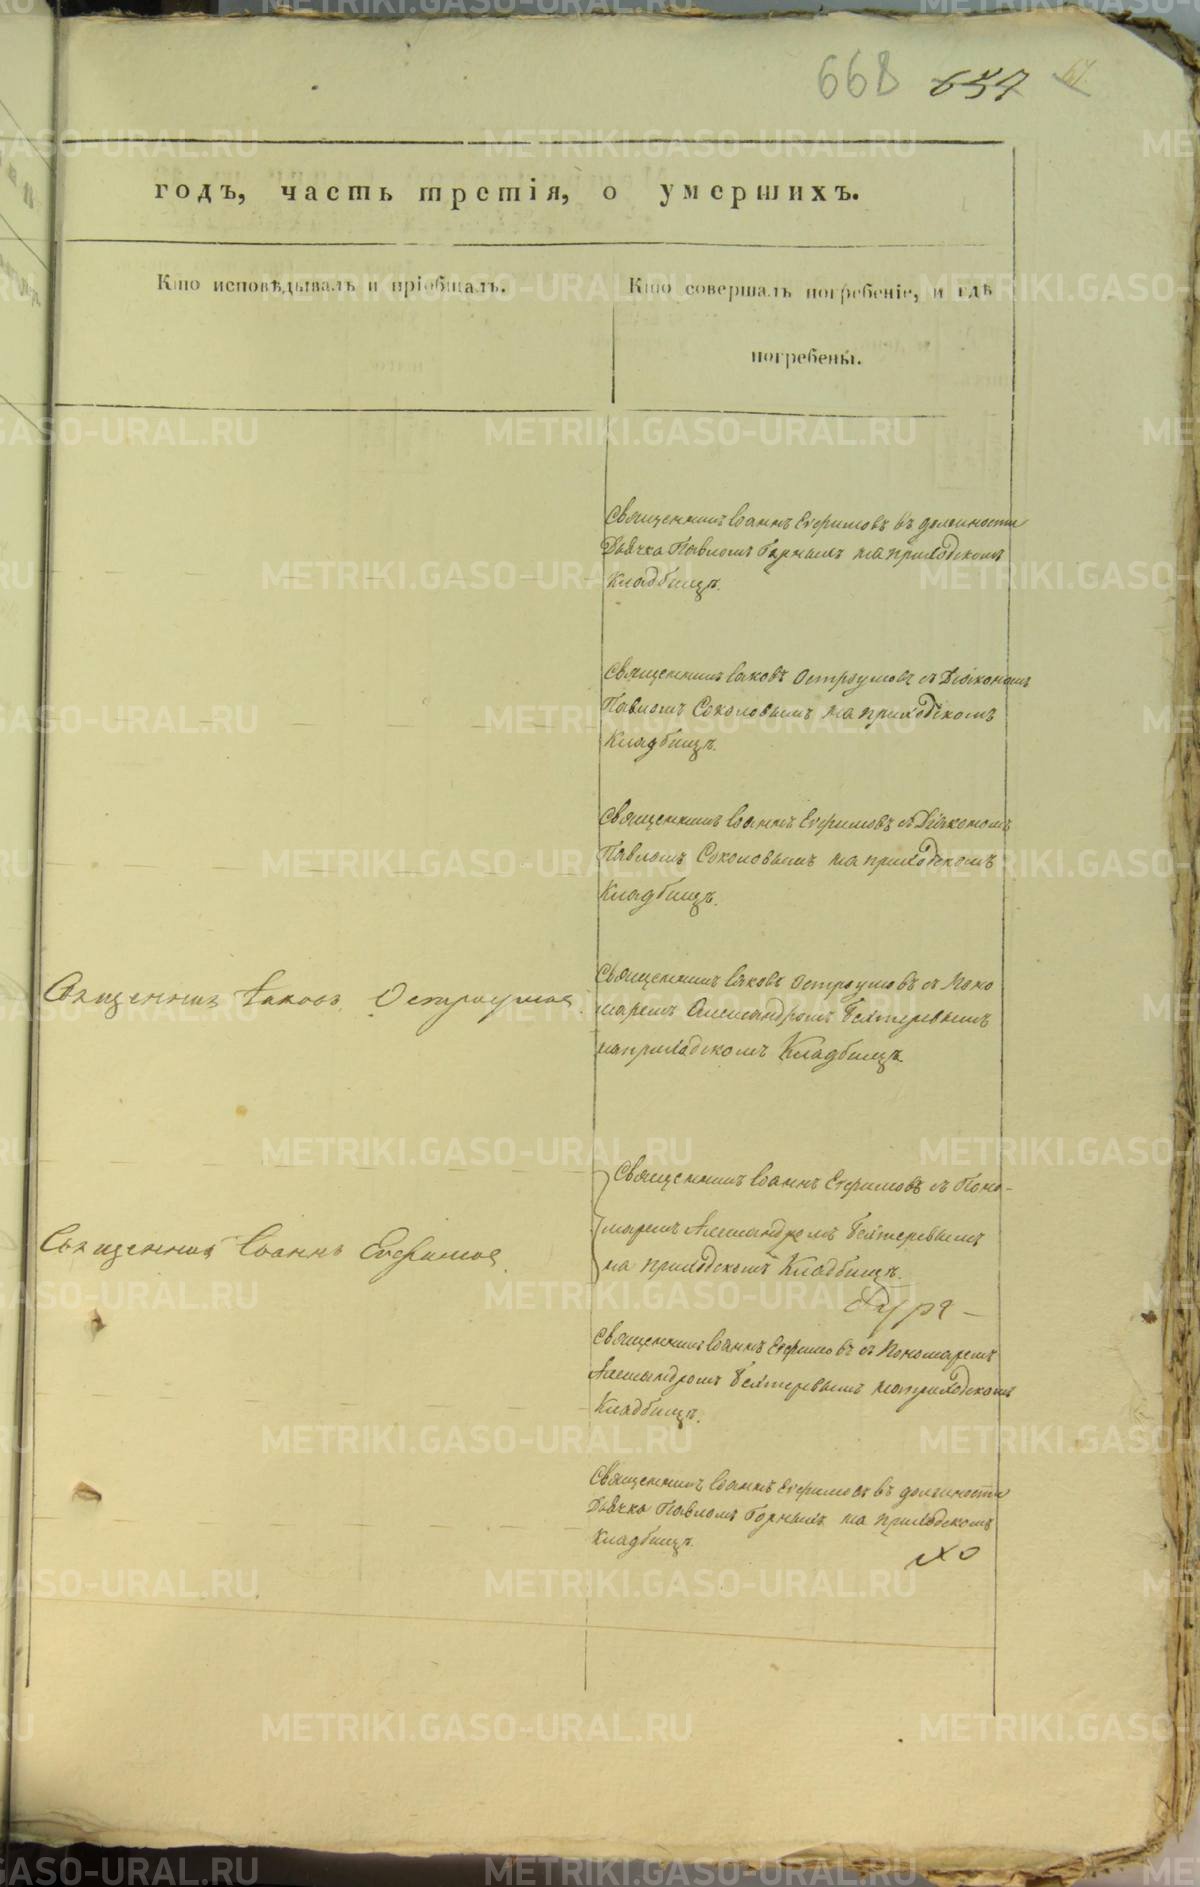 668 657
годъ, часть третія, о умершихъ.
Кто исповѣдывалъ и пріобщалъ.
Кто совершалъ погребеніе, и гдѣ
погребены.
Священникъ Іоаннъ Евфимовъ въ должности
Дьячка Павломъ Горныхъ на приходскомъ
Кладбищѣ.
Священникъ Іаковъ Остроумовъ съ Діакономъ
Павломъ Соколовымъ на приходскомъ
Кладбищѣ.
Священникъ Іоаннъ Евфимовъ съ Діякономъ
Павломъ Соколовымъ на приходскомъ
Кладбищѣ.
Священникъ Іаковъ Остроумов
Священникъ Іаковъ Остроумовъ съ Поно
маремъ Александромъ
на приходскомъ Кладбищѣ
Священникъ Іоаннъ Евфимов
Священникъ Іоаннъ Евфимовъ съ Поно-
маремъ Александромъ
на приходскомъ Кладбищѣ.
Священникъ Іоаннъ Евфимовъ съ Пономаремъ
Александромъ на приходскомъ
Кладбищѣ.
Священникъ Іоаннъ Евфимовъ въ должности
Дьячка Павломъ Горныхъ на приходскомъ
Кладбищѣ.
METRIKI.GASO-URAL.RU